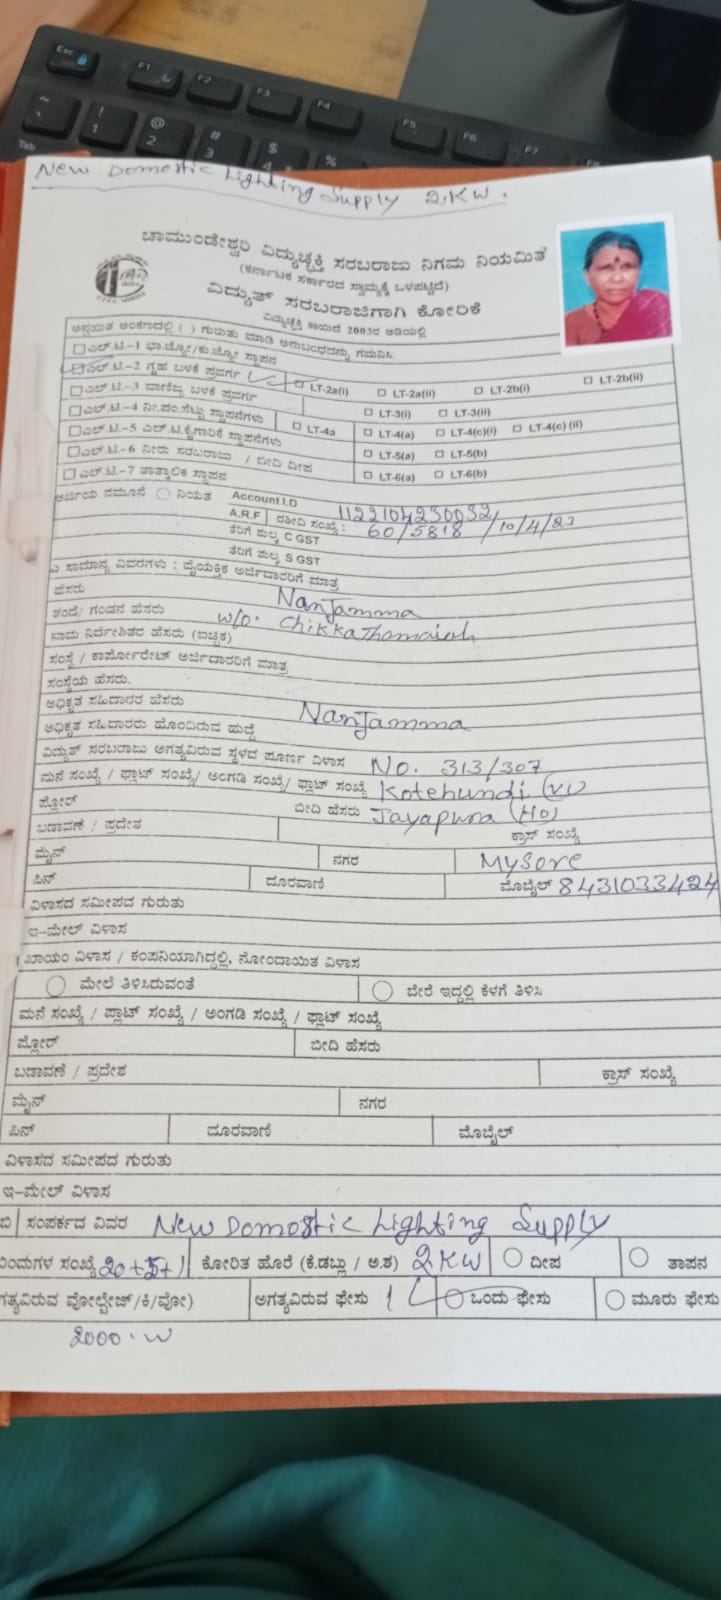 New Domostic Lighting Supply 2.KW.
ಚಾಮುಂಡೇಶ್ವರಿ ವಿದ್ಯುಚ್ಛಕ್ತಿ ಸರಬರಾಜು ನಿಗಮ ನಿಯಮಿತ
(ಕರ್ನಾಟಕ ಸರ್ಕಾರದ ಸ್ವಾಮ್ಯಕ್ಕೆ ಒಳಪಟ್ಟಿದೆ)
ವಿದ್ಯುತ್ ಸರಬರಾಜಿಗಾಗಿ ಕೋರಿಕೆ
ವಿದ್ಯುಚ್ಛಕ್ತಿ ಕಾಯಿದೆ 2003ರ ಅಡಿಯಲ್ಲಿ
ಅನ್ವಯಿತ ಅಂಕಣದಲ್ಲಿ ( ) ಗುರುತು ಮಾಡಿ ಅನುಬಂಧವನ್ನು ಗಮನಿಸಿ
ಎಲ್.ಟಿ.-1 ಭಾ.ಜ್ಯೋ/ಕು.ಜ್ಯೋ ಸ್ಥಾಪನ
ಎಲ್.ಟಿ.-2 ಗೃಹ ಬಳಕೆ ಪ್ರವರ್ಗ LT-2a(i) LT-2a(ii) LT-2b(i) LT-2b(ii)
ಎಲ್.ಟಿ.-3 ವಾಣಿಜ್ಯ ಬಳಕೆ ಪ್ರವರ್ಗ LT-3(i) LT-3(ii)
ಎಲ್.ಟಿ.-4 ನೀ.ಪಂ.ಸೆಟ್ಟು ಸ್ಥಾಪನೆಗಳು LT-4a LT-4(a) LT-4(c)(i) LT-4(c) (ii)
ಎಲ್.ಟಿ.-5 ಎಲ್.ಟಿ.ಕೈಗಾರಿಕೆ ಸ್ಥಾಪನೆಗಳು LT-5(a) LT-5(b)
ಎಲ್.ಟಿ.-6 ನೀರು ಸರಬರಾಜು / ಬೀದಿ ದೀಪ LT-6(a) LT-6(b)
ಎಲ್.ಟಿ.-7 ತಾತ್ಕಾಲಿಕ ಸ್ಥಾಪನ
ಅರ್ಜಿಯ ನಮೂನೆ ನಿಯತ Account I.D 1122104230032
A.R.F ರಶೀದಿ ಸಂಖ್ಯೆ : 60/5818 / 10/4/23
ತೆರಿಗೆ ಶುಲ್ಕ C GST
ತೆರಿಗೆ ಶುಲ್ಕ S GST
ಎ ಸಾಮಾನ್ಯ ವಿವರಗಳು : ವೈಯಕ್ತಿಕ ಅರ್ಜಿದಾರರಿಗೆ ಮಾತ್ರ
ಹೆಸರು Nanjamma
ತಂದೆ/ ಗಂಡನ ಹೆಸರು w/o. Chikkathamaiah
ನಾಮ ನಿರ್ದೇಶಿತರ ಹೆಸರು (ಐಚ್ಛಿಕ)
ಸಂಸ್ಥೆ / ಕಾರ್ಪೋರೇಟ್ ಅರ್ಜಿದಾರರಿಗೆ ಮಾತ್ರ
ಸಂಸ್ಥೆಯ ಹೆಸರು.
ಅಧಿಕೃತ ಸಹಿದಾರರ ಹೆಸರು Nanjamma
ಅಧಿಕೃತ ಸಹಿದಾರರು ಹೊಂದಿರುವ ಹುದ್ದೆ
ವಿದ್ಯುತ್ ಸರಬರಾಜು ಅಗತ್ಯವಿರುವ ಸ್ಥಳದ ಪೂರ್ಣ ವಿಳಾಸ No. 313/307
ಮನೆ ಸಂಖ್ಯೆ / ಫ್ಲಾಟ್ ಸಂಖ್ಯೆ/ ಅಂಗಡಿ ಸಂಖ್ಯೆ/ ಫ್ಲಾಟ್ ಸಂಖ್ಯೆ Kotehundi (V)
ಫ್ಲೋರ್ ಬೀದಿ ಹೆಸರು Jayapura (Ho)
ಬಡಾವಣೆ / ಪ್ರದೇಶ ಕ್ರಾಸ್ ಸಂಖ್ಯೆ
ಮೈನ್ ನಗರ Mysore
ಪಿನ್ ದೂರವಾಣಿ ಮೊಬೈಲ್ 8431033424
ವಿಳಾಸದ ಸಮೀಪದ ಗುರುತು
ಇ-ಮೇಲ್ ವಿಳಾಸ
ಖಾಯಂ ವಿಳಾಸ / ಕಂಪನಿಯಾಗಿದ್ದಲ್ಲಿ, ನೋಂದಾಯಿತ ವಿಳಾಸ
ಮೇಲೆ ತಿಳಿಸಿರುವಂತೆ ಬೇರೆ ಇದ್ದಲ್ಲಿ ಕೆಳಗೆ ತಿಳಿಸಿ
ಮನೆ ಸಂಖ್ಯೆ / ಪ್ಲಾಟ್ ಸಂಖ್ಯೆ / ಅಂಗಡಿ ಸಂಖ್ಯೆ / ಫ್ಲಾಟ್ ಸಂಖ್ಯೆ
ಫ್ಲೋರ್ ಬೀದಿ ಹೆಸರು
ಬಡಾವಣೆ / ಪ್ರದೇಶ ಕ್ರಾಸ್ ಸಂಖ್ಯೆ
ಮೈನ್ ನಗರ
ಪಿನ್ ದೂರವಾಣಿ ಮೊಬೈಲ್
ವಿಳಾಸದ ಸಮೀಪದ ಗುರುತು
ಇ-ಮೇಲ್ ವಿಳಾಸ
ಬಿ ಸಂಪರ್ಕದ ವಿವರ New Domostic Lighting Supply
ಬಿಂದುಗಳ ಸಂಖ್ಯೆ ಕೋರಿತ ಹೊರೆ (ಕೆ.ಡಬ್ಲು / ಅ.ಶ) 2KW ದೀಪ ತಾಪನ
ಗತ್ಯವಿರುವ ವೋಲ್ಟೇಜ್/ಕಿ/ವೋ) ಅಗತ್ಯವಿರುವ ಫೇಸು 1 ಒಂದು ಫೇಸು ಮೂರು ಫೇಸು
2000.W